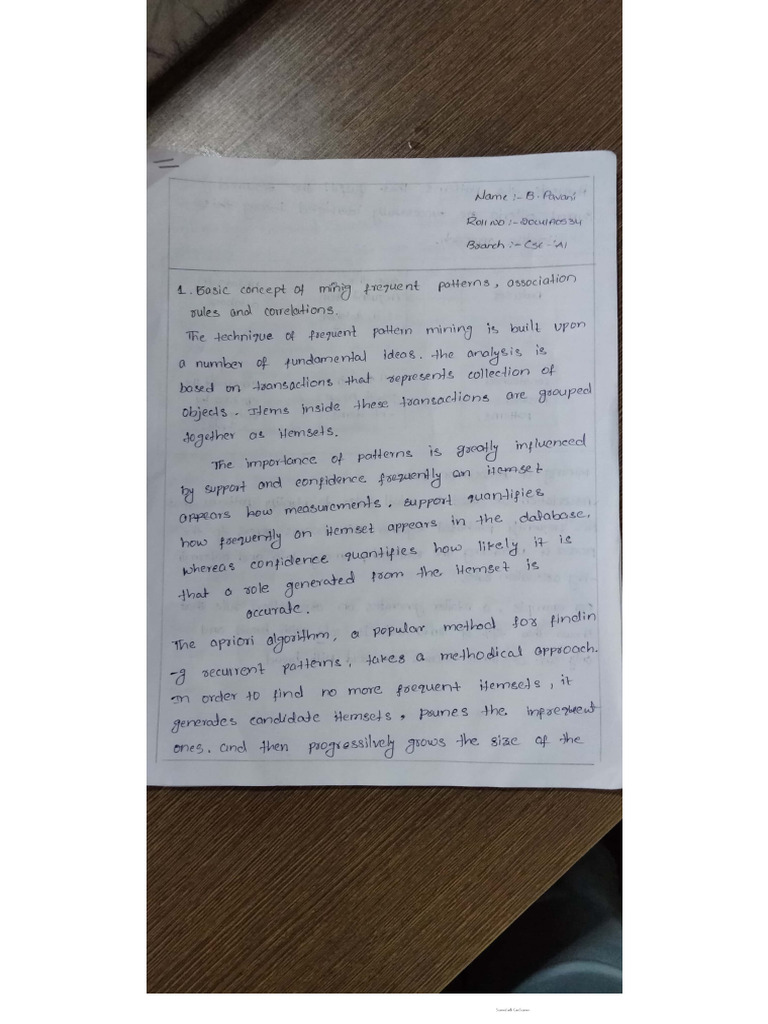 Name :- B. Pavani
Roll NO :-
Branch :- CSE - AI
1. Basic concept of minig frequent patterns, association
rules and correlations.
The technique of frequent pattern mining is built upon
a number of fundamental ideas. the analysis is
based on transactions that represents collection of
objects. Items inside these transactions are grouped
together as itemsets.
The importance of patterns is greatly influenced
by support and confidence frequently an itemset
appears how measurements. support quantifies
how frequently an itemset appears in the database.
whereas confidence quantifies how likely, it is
that a role generated from the itemset is
accurate.
The apriori algorithm, a popular method for findin
-g recurrent patterns, takes a methodical approach.
In order to find no more frequent itemsets, it
generates candidate itemsets, prunes the infrequent
ones. and then progressilvely grows the size of the